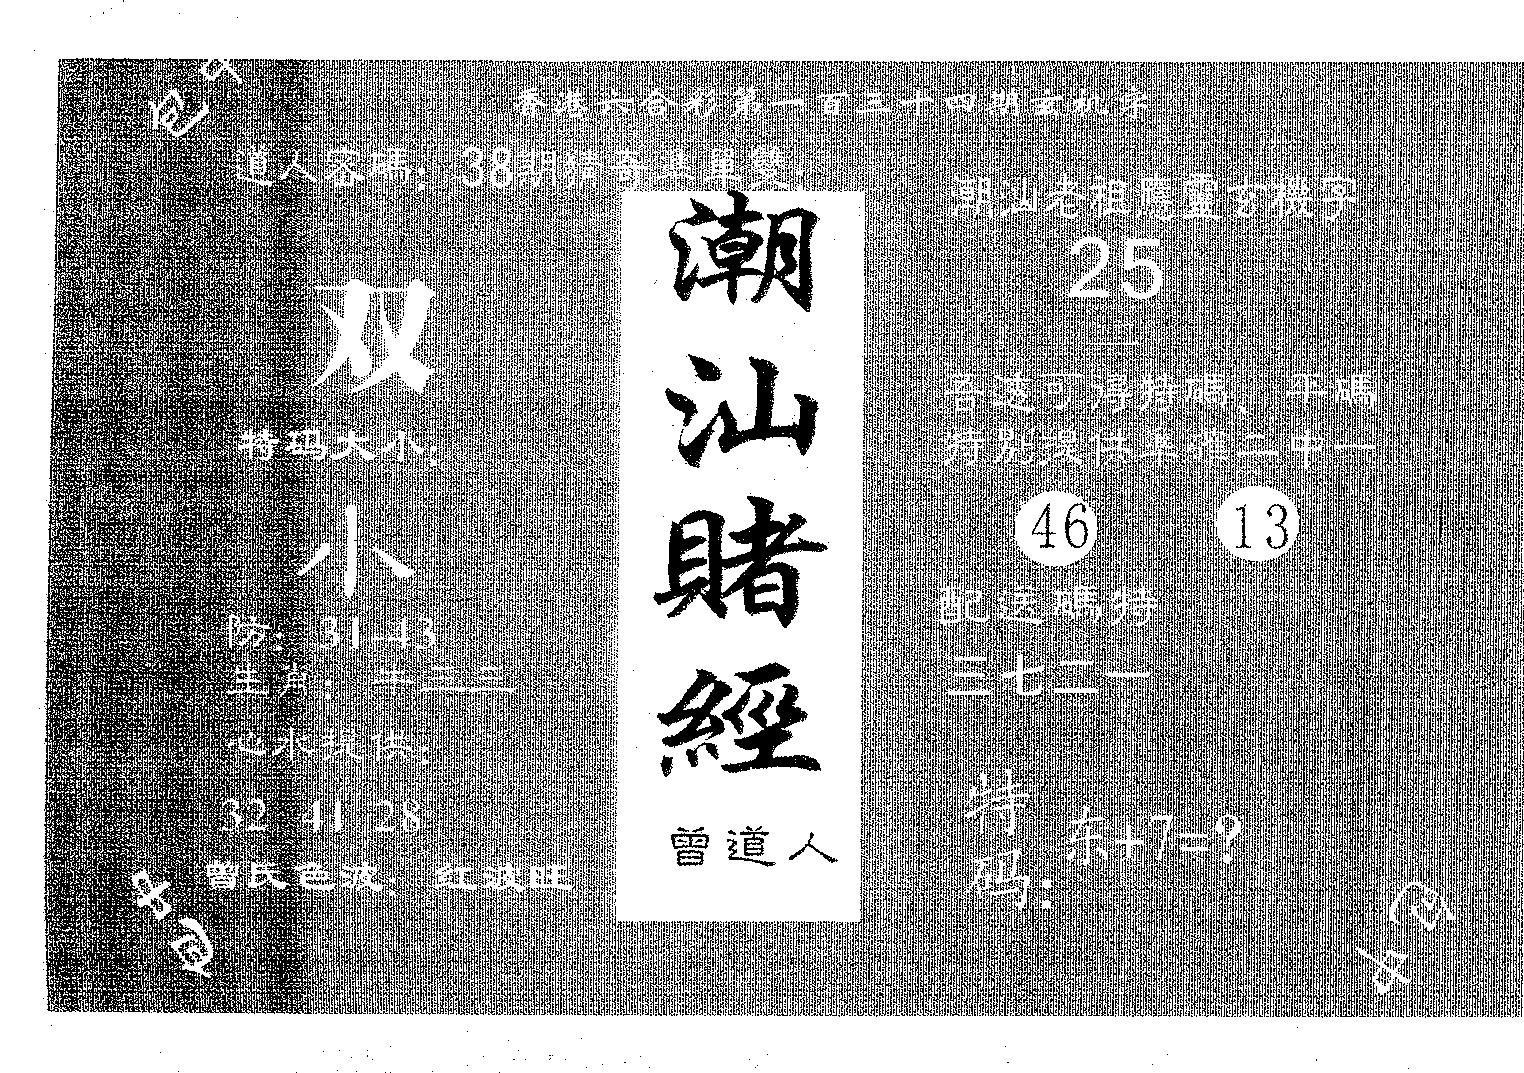 香港六合彩第一百三十四期玄机字
道人密碼：38期精奇道單雙
双
特玛大小：
小
防：31 43
生肖：牛三三
心水提供：
32 41 28
曾氏色波：红波旺
潮
汕
賭
經
曾道人
潮汕老祖應靈玄機字
25
百送可得特碼、平碼
特别提供準確二中一
46 13
配送碼特
三七二一
特码：东+7=?